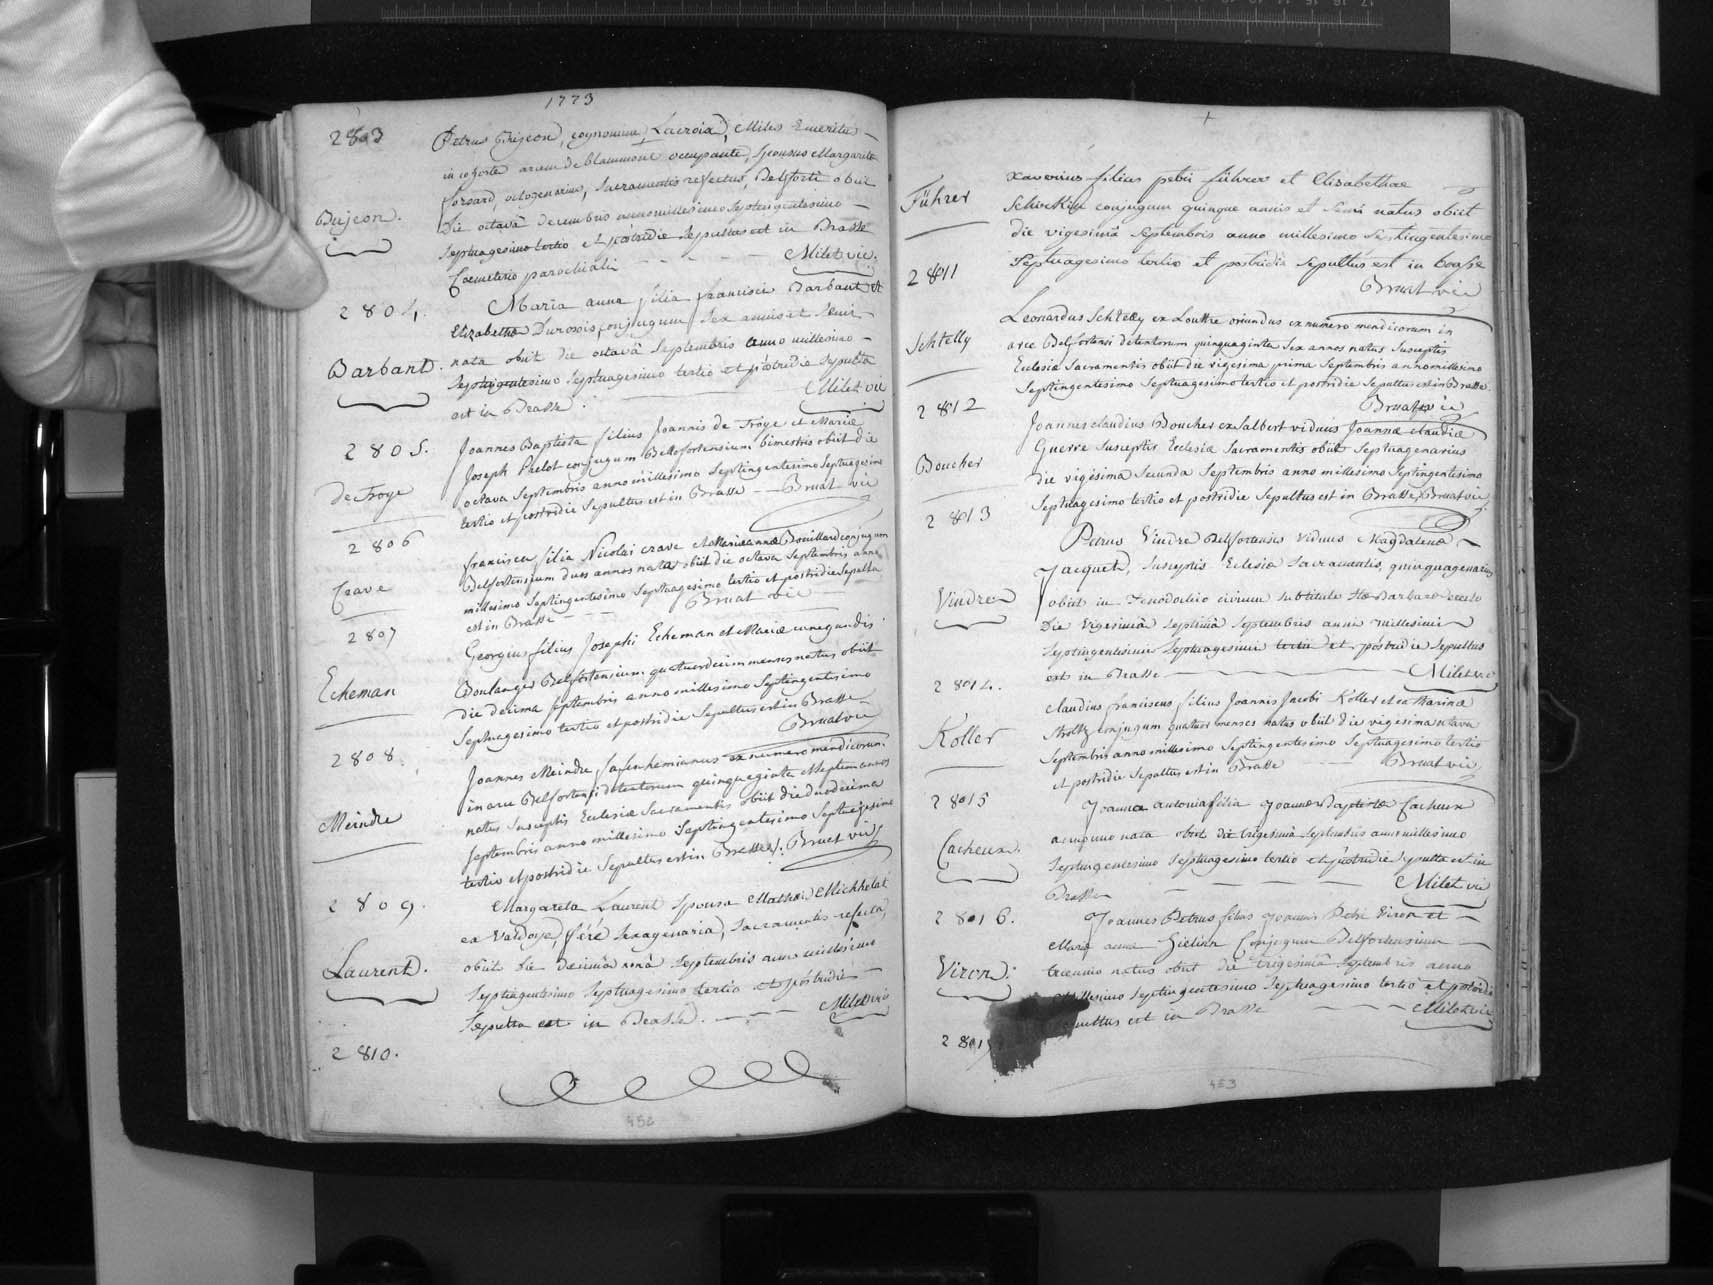 1773
2803
Petrus Bujeon, cognomine Lacroix, Miles Emeritus
in cohorte arcem de Blammont occupante, sponsus Margaritæ
forsard, octogenarius, Sacramentis refectus, Belforti obiit
Bujeon.
die octavâ decembris anno millesimo Septingentesimo
Septuagesimo tertio et postridie Sepultus est in Brasse
Coemeterio parochiali - - - - Milet vic.
2804.
Maria anna filia francisci Barbant et
Elizabethæ Durosois conjugum Sex annis et Semi
Barbant.
nata obiit die octavâ Septembris anno millesimo
Septingentesimo Septuagesimo tertio et postridie Sepulta
est in Brasse. Milet vic
2805.
Joannes Baptista filius Joannis de Troye et Mariæ
Joseph Prelot conjugum Belfortensium bimestris obiit die
de Troye
octava Septembris anno millesimo Septingentesimo Septuagesimo
tertio et postridie Sepultus est in Brasse - Bruat vic
2806
francisca filia Nicolai crave et Mariæ annæ Bouillard conjugum
Belfortensium duos annos nata obiit die octava Septembris anno
Crave
millesimo Septingentesimo Septuagesimo tertio et postridie Sepulta
est in Brasse - Bruat vic
2807
Georgius filius Josephi Echeman et Mariæ cunegundis
Echeman
Boulanger Belfortensium quatuordecim menses natus obiit
die decima septembris anno millesimo Septingentesimo
Septuagesimo tertio et postridie Sepultus est in Brasse
Bruat vic
2808.
Joannes Meindre ex numero mendicorum
in arce Belfortensi detentorum quinquaginta et Septem annos
Meindre
natus Susceptis Ecclesiæ Sacramentis obiit die duodecima
Septembris anno millesimo Septingentesimo Septuagesimo
tertio et postridie Sepultus est in Brasse. Bruat vic
2809.
Margareta Laurent Sponsa Mathæi Michhelat
ex Valdoye, feré Sexagenaria, Sacramentis refecta,
Laurent.
obiit die decimâ nonâ Septembris anno millesimo
Septingentesimo Septuagesimo tertio et postridie
Sepulta est in Brasse. - - - Milet vic
2810.
452
Xaverius filius petri führer et Elisabethae
Führer
conjugum quinque annis et Semi natus obiit
die vigesimâ Septembris anno millesimo Septingentesimo
2811
Septuagesimo tertio et postridie Sepultus est in brasse
Bruat vic
Leonardus Schtelly ex Louttre oriundus ex numero mendicorum in
Schtelly
arce Belfortensi detentorum quinquaginta Sex annos natus Susceptis
Ecclesiæ Sacramentis obiit die vigesima prima Septembris anno millesimo
Septingentesimo Septuagesimo tertio et postridie Sepultus est in Brasse
2812
Bruat vic
Joannes claudius Boucher ex Salbert viduus Joannæ claudiæ
Guerre Susceptis Ecclesiæ Sacramentis obiit Septuagenarius
Boucher
die vigesima Secunda Septembris anno millesimo Septingentesimo
Septuagesimo tertio et postridie Sepultus est in Brasse Bruat vic
2813
Petrus Vindre Belfortensis Viduus Magdalenæ
Jacquet, Susceptis Eclesiæ Sacramentis, quinquagenarius
Vindre
obiit in Xenodochio civium Sub titulo Stæ Barbaræ erecto
die Vigesimâ Septimâ Septembris anni millesimi
Septingentesimi Septuagesimi tertii et postridie Sepultus
est in Brasse - Milet vic
2814.
claudius franciscus filius Joannis Jacobi Koller et catharinæ
Stroltz conjugum quatuor menses natus obiit die vigesima octava
Koller
Septembris anno millesimo Septingentesimo Septuagesimo tertio
et postridie Sepultus est in Brasse - Bruat vic
2815
Joanna antonia filia Joannis Baptistæ Cacheux
Cacheux.
nata obiit die trigesimâ Septembris anno millesimo
Septingentesimo Septuagesimo tertio et postridie sepulta est in
Brasse - - - - Milet vic
2816.
Joannes Petrus filius Joannis Petri Viron et
Mariæ annæ Conjugum Belfortensium
Viron.
triennio natus obiit die trigesimâ Septembris anno
Millesimo Septingentesimo Septuagesimo tertio et postridie
est in Brasse - - - Milet vic
453